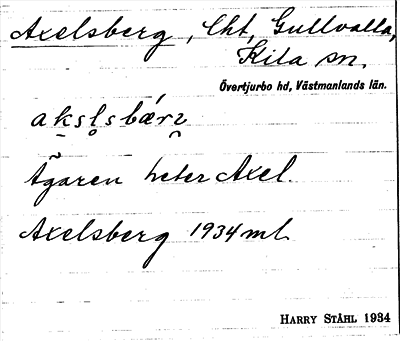 Axelsberg, lht, Gullvalla,
Kila sn.
Övertjurbo hd, Västmanlands län.
Ägaren heter Axel.
Axelsberg 1934 ml.
HARRY STÅHL 1934